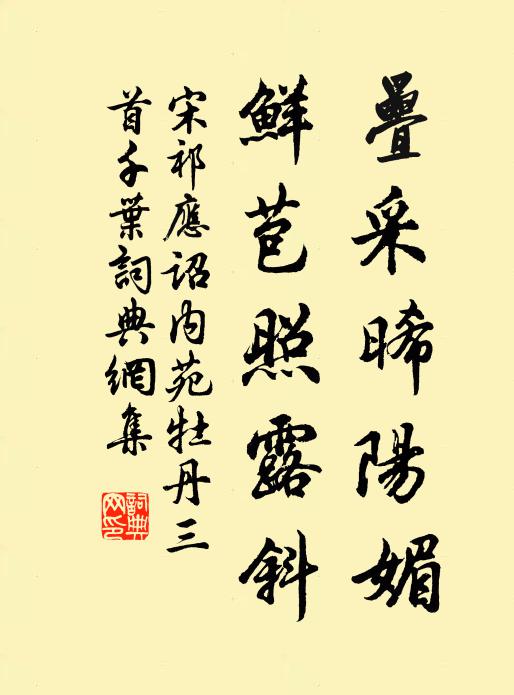 疊采晞陽媚
鮮苞照露斜
宋祁應詔内苑牡丹三
首千葉詞典網集
詞典網印